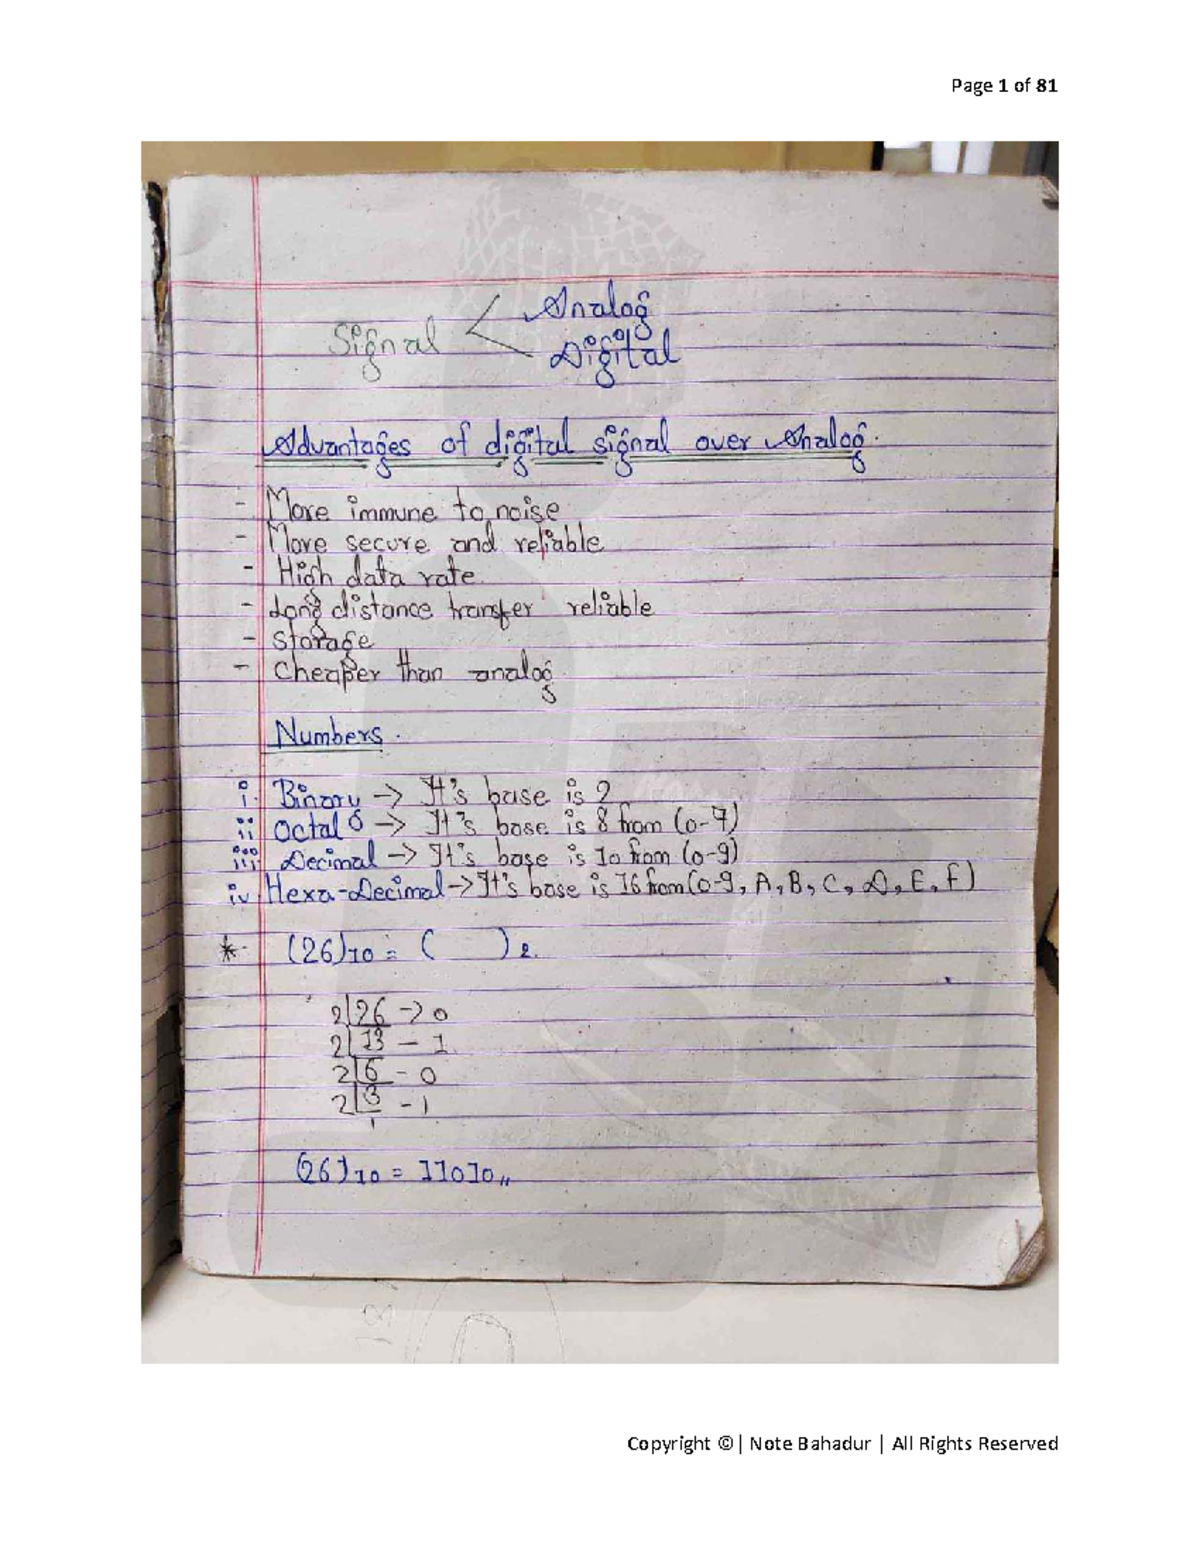 Page 1 of 81
Signal < Analog
Digital
Advantages of digital signal over Analog.
- More immune to noise
- More secure and reliable
- High data rate
- Long distance transfer reliable
- Storage
- Cheaper than analog
Numbers.
i. Binary -> It's base is 2
ii Octal -> It's base is 8 from (0-7)
iii Decimal -> It's base is 10 from (0-9)
iv Hexa-Decimal -> It's base is 16 from (0-9, A, B, C, D, E, F)
* (26)10 = ( )2.
2|26 -> 0
2|13 - 1
2|6 - 0
2|3 - 1
1
(26)10 = 11010,,
Copyright ©| Note Bahadur | All Rights Reserved